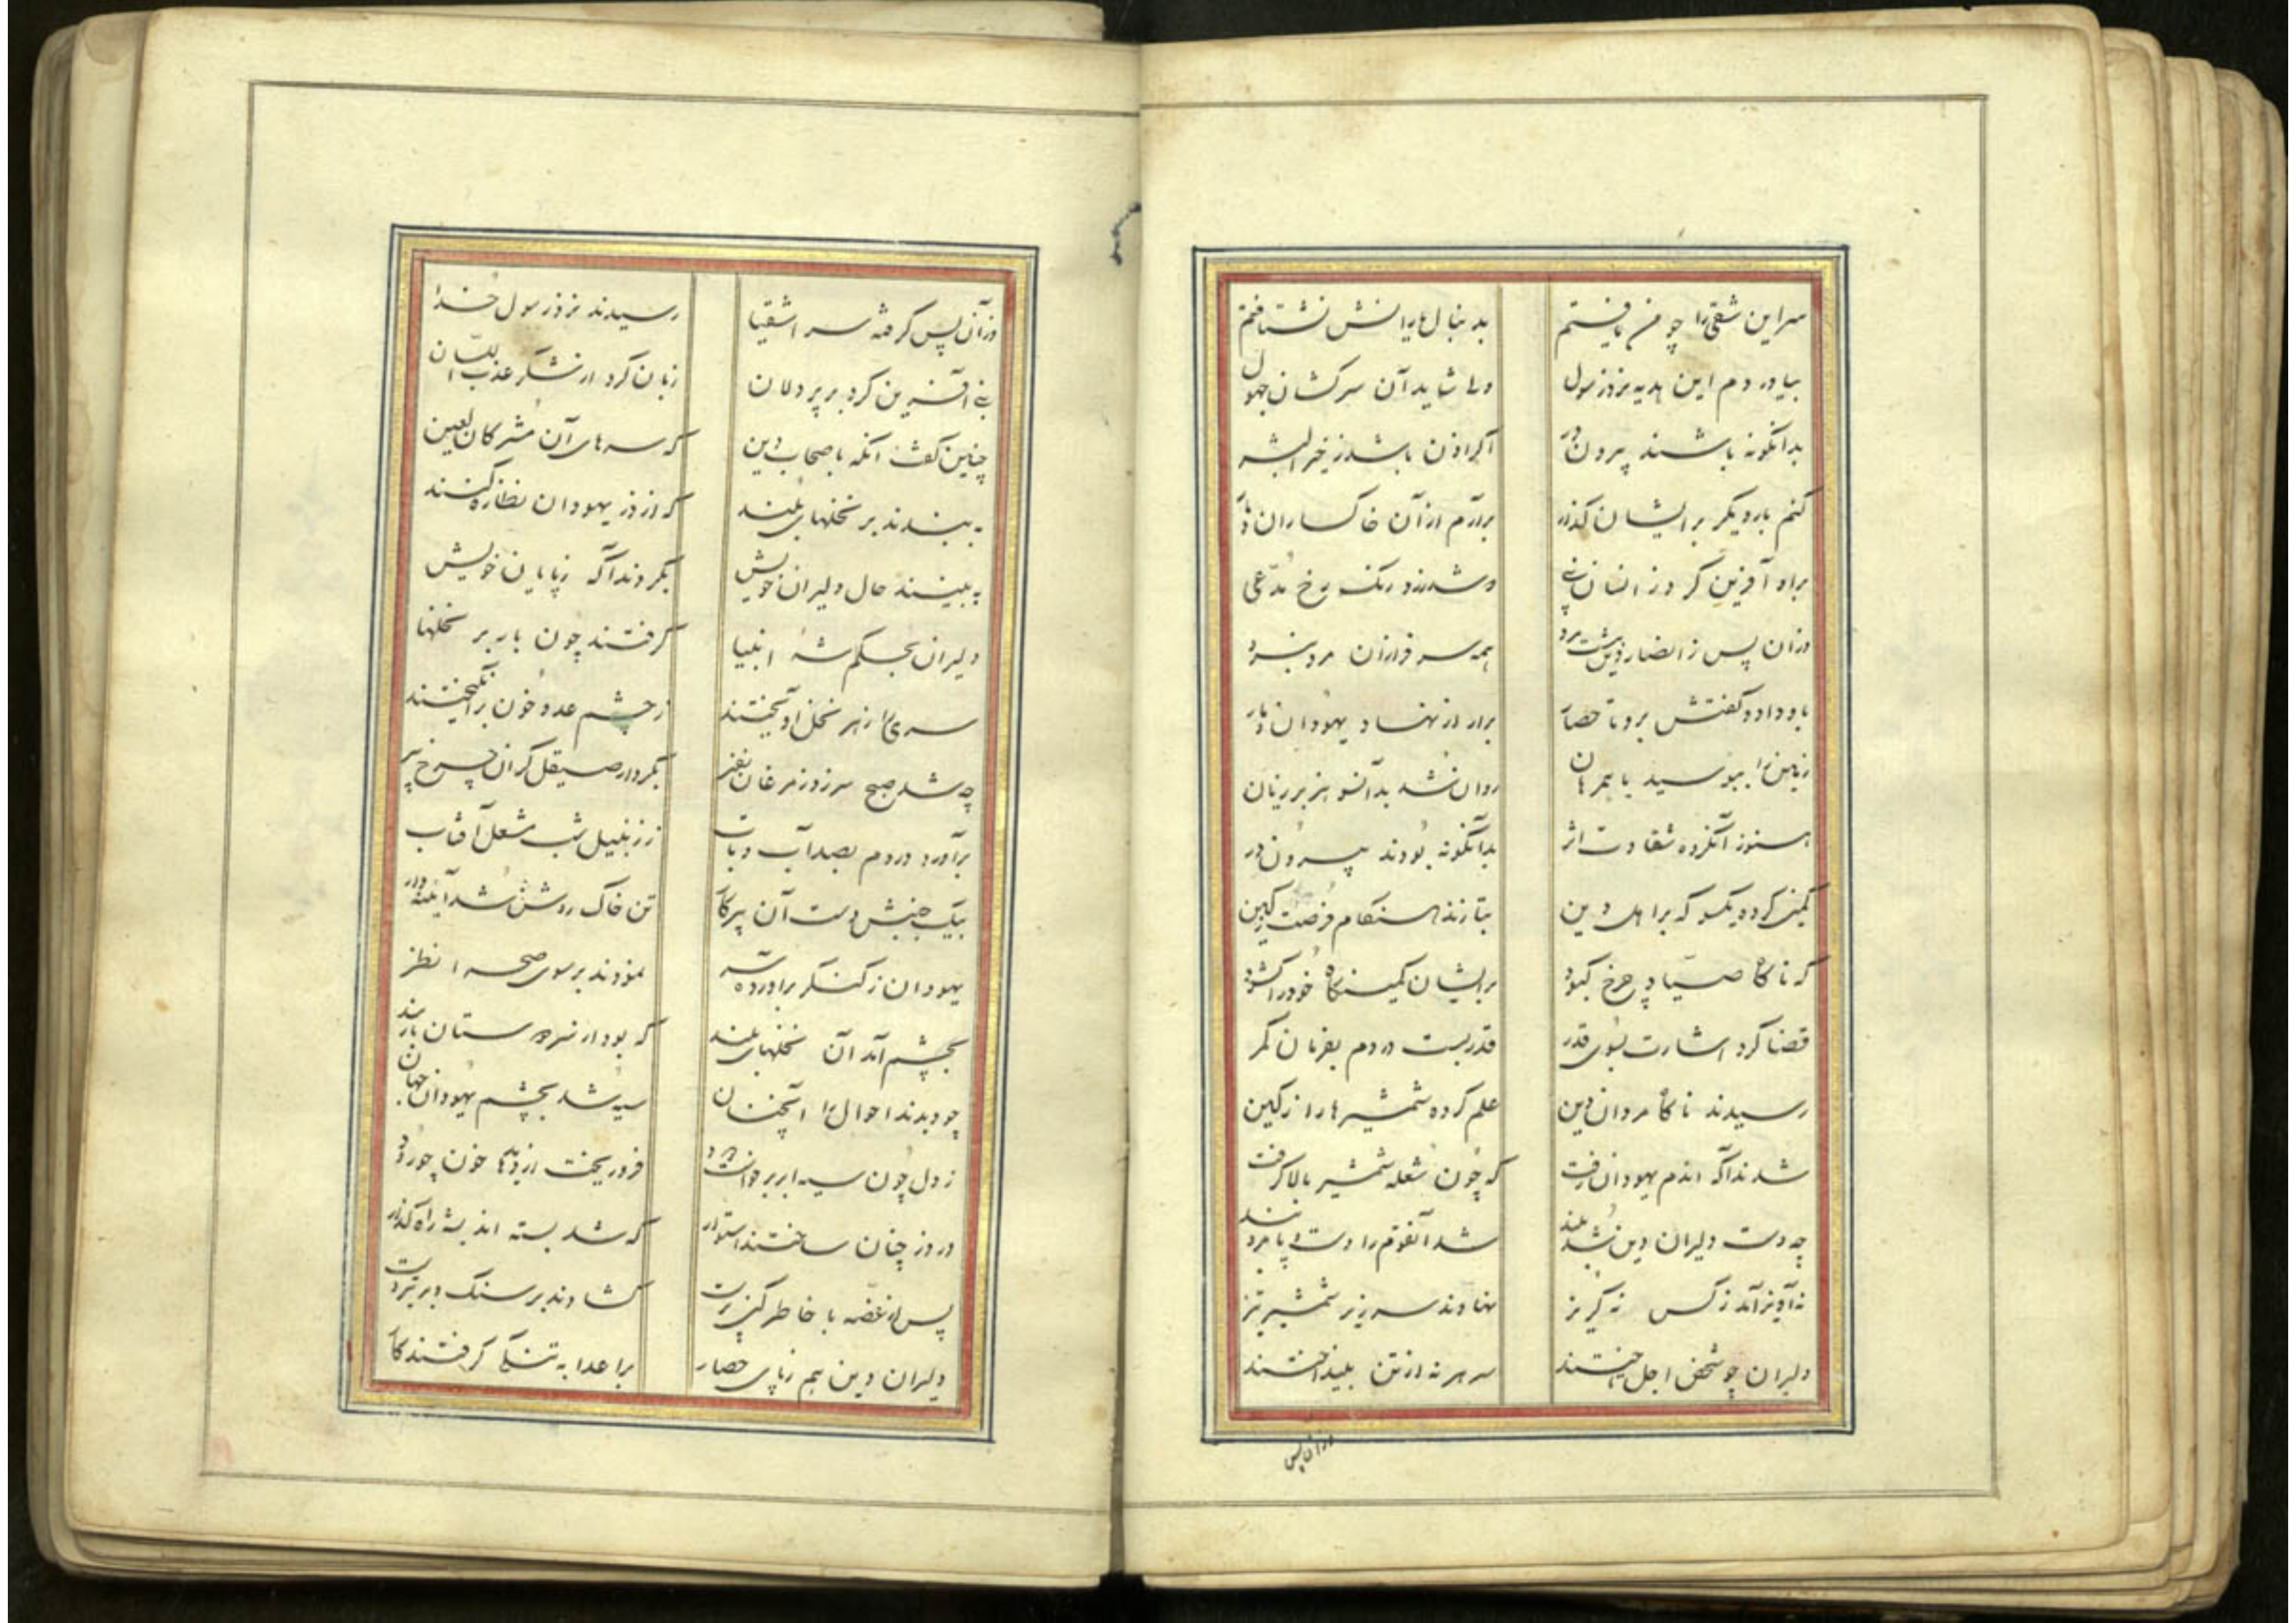 سر این شقی را چو من یافتم بدنبال یارانش نشتافتم
بیاوردم این هدیه نزد رسول ولی شاید آن سرکشان جهول
بدانگونه باشند بیرون در اگر اذن باشد ز خیر البشر
کنم بار دیگر بر ایشان گذار برآرم از آن خاکساران دمار
براه آفرین کرد زانسان نبی و شد زرد رنک رخ مدعی
وزان پس ز انصار دین هشت مرد همه سرفرازان مرد نبرد
باو داد و کفتش برو تا حصار برار از نهاد یهودان دمار
زمین را ببوسید با همرهان روان شد بدآنسو هزبر ژیان
هنوز آنکروه شقاوت اثر بدآنگونه بودند بیرون در
کمین کرده یکسو که بر اهل دین بتازند هنکام فرصت ز کین
که ناگاه صیاد چرخ کبود بر ایشان کمینگاه خود را کشود
قضا کرد اشارت بسوی قدر قدر بست در دم بفرمان کمر
رسیدند ناگاه مردان دین علم کرده شمشیرها را ز کین
شدند آگه اندم یهودان زفت که چون شعله شمشیر بالا کرفت
چه دست دلیران دین شد بلند شد آنقوم را دست و پا در بند
نه آویز آمد ز کس نه گریز نهادند سر زیر شمشیر تیز
دلیران چو شخص اجل تاختند سر هر نه از تن بینداختند
وزان پس
وزآن پس کرفته سر اشقیا رسیدند نزد رسول خدا
نبی آفرین کرد بر پردلان زبان کرد از شکر عذب اللسان
چنین کفت آنکه باصحاب دین که سرهای آن مشرکان لعین
به بندند بر نخلهای بلند که از دز یهودان نظاره کنند
به بینند حال دلیران خویش بگردند آگه ز پایان خویش
دلیران بحکم شه انبیا گرفتند چون بار بر نخلها
سری را ز هر نخل آویختند ز چشم عدو خون برانگیختند
چه شد صبح سر زد ز مرغان نفیر بکردار صیقل گران چرخ پیر
برآورد در دم بصد آب و تاب ز زنبیل شب مشعل آفتاب
بیک جنبش دست آن پرکار تن خاک روشن شد آیینه وار
یهودان ز کنکر برآورده سر نمودند بر سوی صحرا نظر
بچشم آمد آن نخلهای بلند که بود از سر دوستان باربند
چو دیدند احوال را آنچنان سیه شد بچشم یهودان جهان
ز دل چون سیه ابر برخواست دود فرو ریخت از دیدها خون چو رود
در دز چنان ساختند استوار که شد بسته اندیشه را راه گذار
پس از غصه با خاطر کین پرست گشادند بر سنک و بر تیر دست
دلیران دین هم ز پای حصار بر اعدا به تنگ گرفتند کار